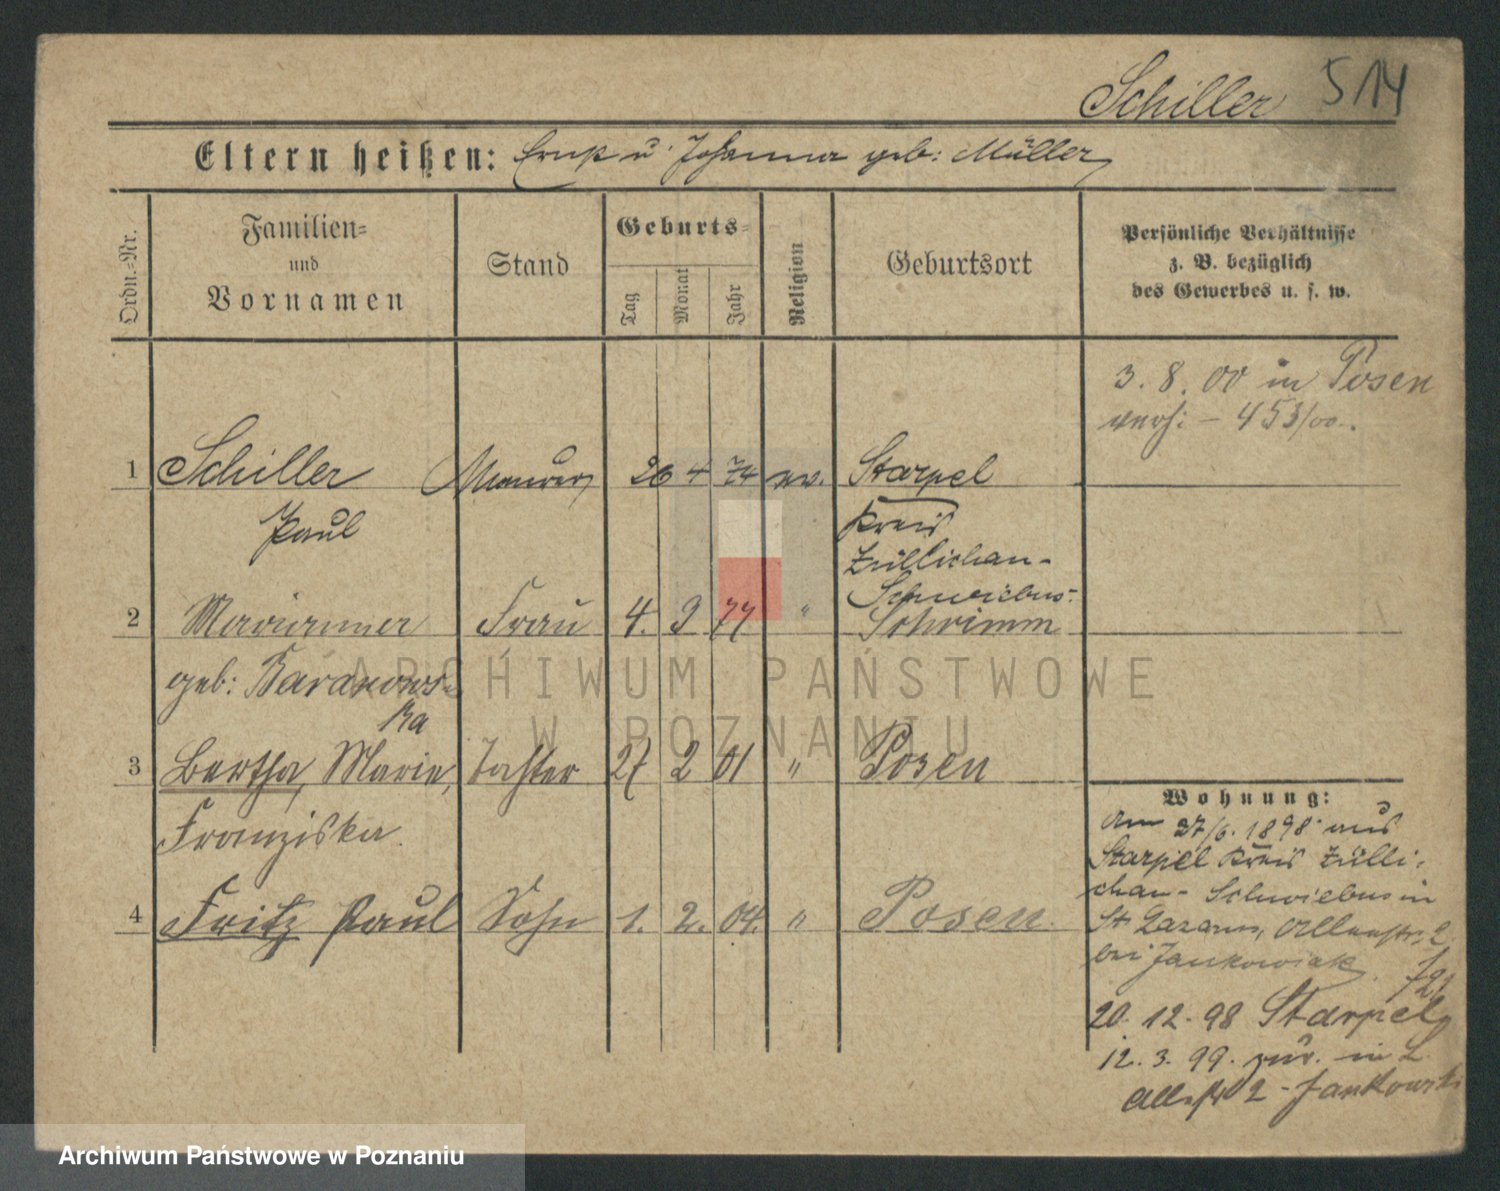 Schiller 514
Eltern heißen: Ernst u Johanna geb: Müller
Ordn.-Nr.
Familien-
und
Vornamen
Stand
Geburts-
Tag
Monat
Jahr
Religion
Geburtsort
Persönliche Verhältnisse
z. B. bezüglich
des Gewerbes u. s. w.
3. 8. 00 in Posen
verh: - 453/00.
1 Schiller Maurer 26 4 74 ev. Starpel
Paul
Kreis
Züllichau-
Schwiebus.
2 Marianna Frau 4. 9 77 " Schrimm
geb: Baranows-
ka
3 Bertha, Marie, Tochter 27 2 01 " Posen
Franziska.
4 Fritz Paul Sohn 1. 2. 04. " Posen.
Wohnung:
Am 27/6. 1898 aus
Starpel Kreis Zülli-
chau- Schwiebus in
St Lazarus, 2
bei Jankowiak.
20. 12. 98 Starpel
12. 3. 99. zur. in L.
2 - Jankowski
ARCHIWUM PAŃSTWOWE
W POZNANIU
Archiwum Państwowe w Poznaniu